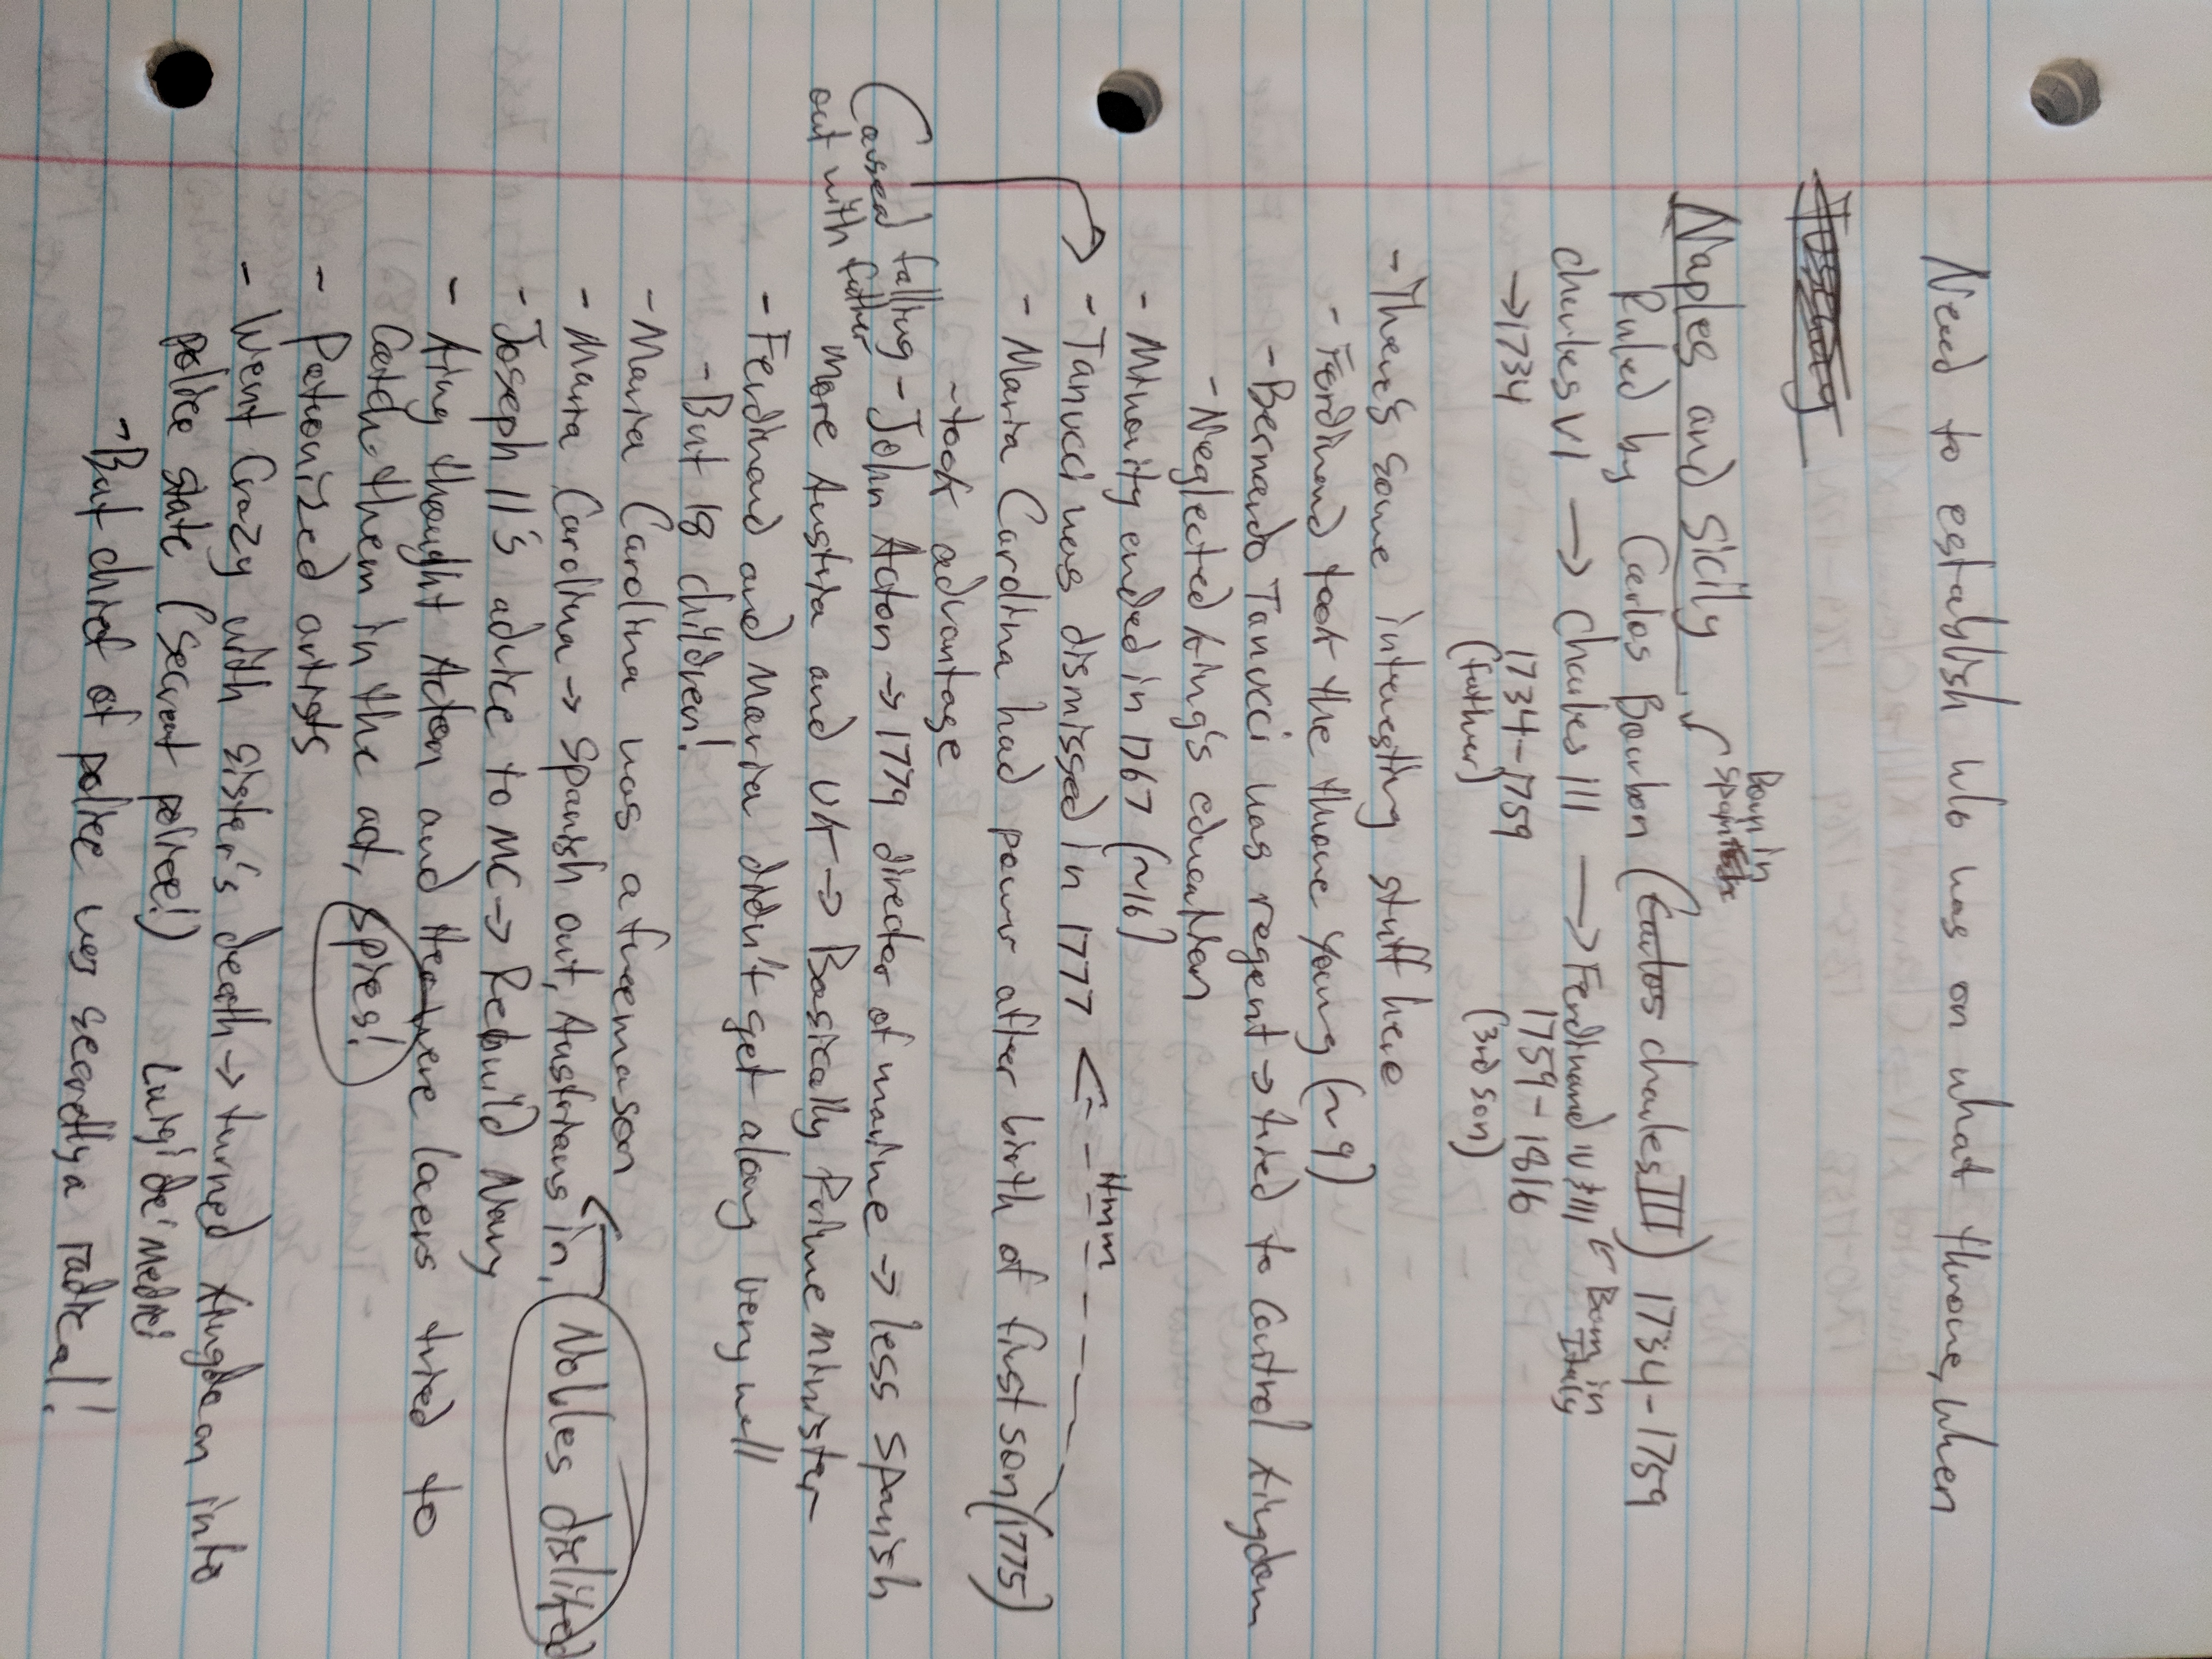 Need to establish who was on what throne, when
Naples and Sicily
Born in
Spain
Ruled by Carlos Bourbon (Carlos Charles III) 1734-1759
Charles VI → Charles III → Ferdinand IV & III ← Born in Italy
→1734 1734-1759 1759-1816
(father) (3rd son)
- There's some interesting stuff here
- Ferdinand took the throne young (~9)
- Bernardo Tanucci was regent → tried to control kingdom
- Neglected king's education
- Minority ended in 1767 (~16)
- Tanucci was dismissed in 1777 <- - Hmm - - -
- Maria Carolina had power after birth of first son (1775)
- took advantage
Caused falling out with father
- John Acton → 1779 director of marine → less Spanish
more Austria and UK → Basically Prime Minister
- Ferdinand and Maria didn't get along very well
- But 18 children!
- Maria Carolina was a freemason
- Maria Carolina → Spanish out, Austrians in, Nobles dislited
- Joseph II's advice to MC → Rebuild Navy
- King thought Acton and her were lovers tried to
Catch them in the act, spies!
- Patronized artists
- Went Crazy with sister's death → turned kingdom into
police state (secret police!) Luigi de' Medici
- But chief of police was secretly a radical!